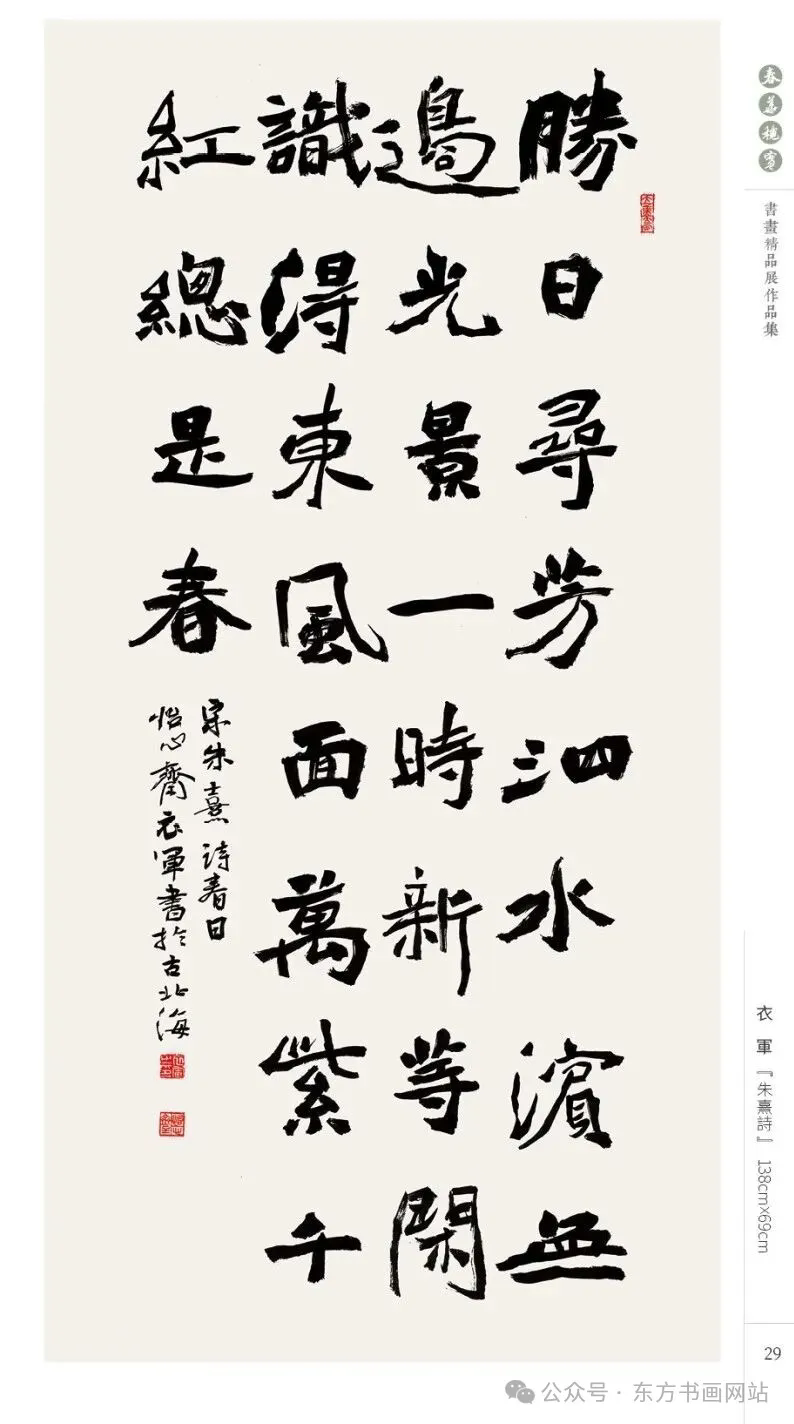 勝日尋芳泗水濱無
邊光景一時新等閑
識得東風面萬紫千
紅總是春
宋朱熹詩春日
怡心齋衣軍書於古北海
春華穐實
書畫精品展作品集
衣軍『朱熹詩』 138cm×69cm
29
公众号·东方书画网站